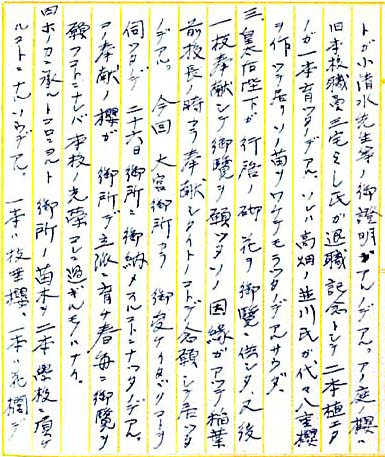 トガ小清水先生等御証明ガアルノデアル。アノ庭ノ櫻ハ
旧本校職員三宅とし氏ガ退職記念トシテ二本植エタ
ノガ一本育ッタノデアル ソレハ高畑ノ並川氏ガ代々八重櫻
ヲ作ッテ居リソノ苗ヲワケテモラッタノデアルサウダ。
三、皇后陛下ガ行啓ノ砌花ヲ御覧ニ供シタ。又後
一枝奉献シテ御覧ヲ願ッタソノ因縁ガアッテ稲葉
前校長ノ時カラ奉献シタイトノコトデ念願シテ居ッタ
ノデアル。今回大宮御所カラ御受ケイタダクコトヲ
伺ッタノデ二十六日御所ニ御納メスルコトニナッタノデアル。
コノ奉献ノ櫻ガ御所デ立派ニ育チ春毎ニ御覧ヲ
願フコトニナレバ本校ノ光榮コレニ過ギルモノハナイ。
四、ホノカニ承ルトコロニヨルト御所ノ苗木ヲ二本學校ニ頂ケ
ルコトニナルソウデアル 一本ハ枝垂櫻 一本ハ左近ノ櫻デ